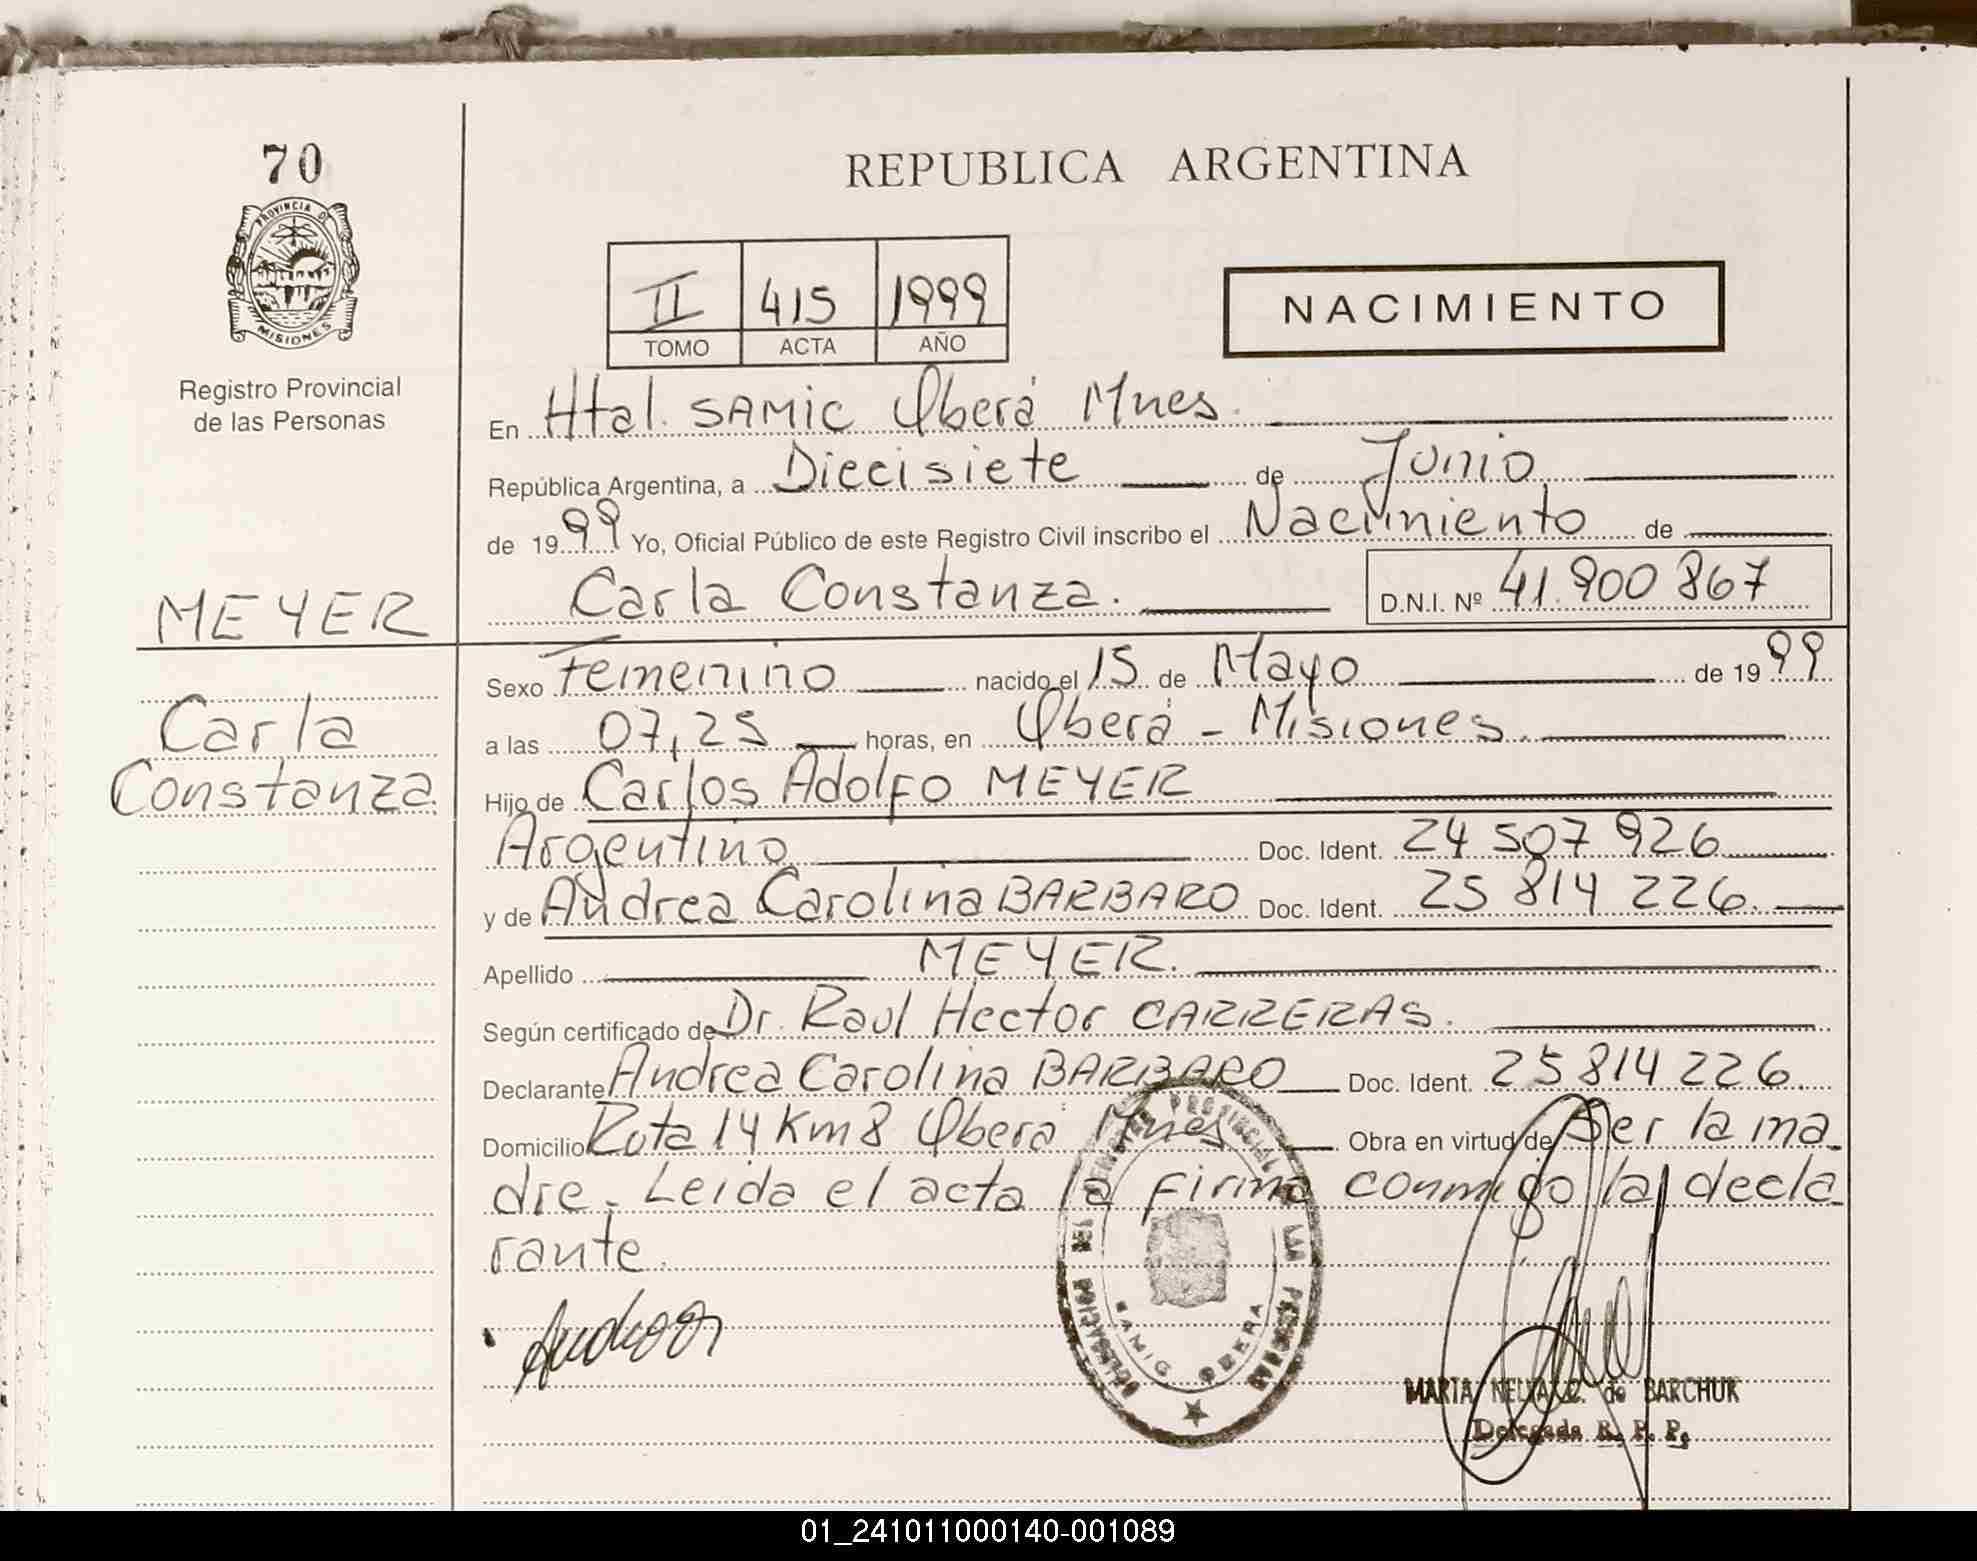 70
PROVINCIA DE
MISIONES
Registro Provincial
de las Personas
REPUBLICA ARGENTINA
II 415 1999
TOMO ACTA AÑO
NACIMIENTO
En Htal. SAMIC Oberá Mnes.
República Argentina, a Diecisiete de Junio
de 1999 Yo, Oficial Público de este Registro Civil inscribo el Nacimiento de
Carla Constanza. D.N.I. Nº 41.900 867
MEYER
Carla
Constanza
Sexo Femenino nacido el 15 de Mayo de 1999
a las 07,25 horas, en Oberá - Misiones.
Hijo de Carlos Adolfo MEYER
Argentino Doc. Ident. 24 507 926
y de Andrea Carolina BARBARO Doc. Ident. 25 814 226.
Apellido MEYER.
Según certificado de Dr. Raul Hector CARRERAS.
Declarante Andrea Carolina BARBARO Doc. Ident. 25 814 226.
Domicilio Ruta 14 Km 8 Oberá Mnes Obra en virtud de Ser la ma
dre. Leida el acta la firma conmigo la decla
rante.
DELEGACION DEL REGISTRO PROVINCIAL DE LAS PERSONAS
SAMIC OBERA
MARIA NELIA de BARCHUK
Delegada R. P. P.
01_241011000140-001089